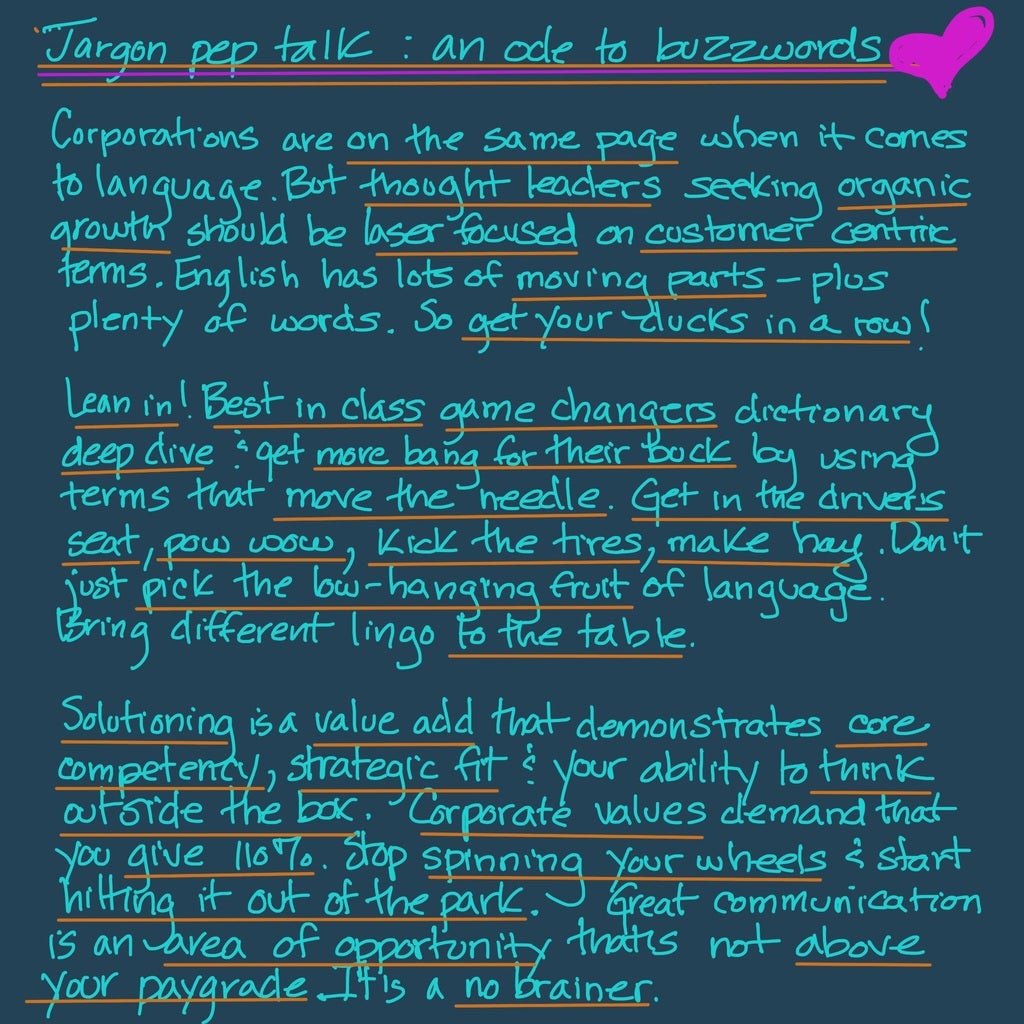 Jargon pep talk : an ode to buzzwords
Corporations are on the same page when it comes
to language. But thought leaders seeking organic
growth should be laser focused on customer centric
terms. English has lots of moving parts – plus
plenty of words. So get your ducks in a row!
Lean in! Best in class game changers dictionary
deep dive & get more bang for their buck by using
terms that move the needle. Get in the driver's
seat, pow wow, kick the tires, make hay. Don't
just pick the low-hanging fruit of language.
Bring different lingo to the table.
Solutioning is a value add that demonstrates core
competency, strategic fit & your ability to think
outside the box. Corporate values demand that
you give 110%. Stop spinning your wheels & start
hitting it out of the park. Great communication
is an area of opportunity that's not above
your paygrade. It's a no brainer.